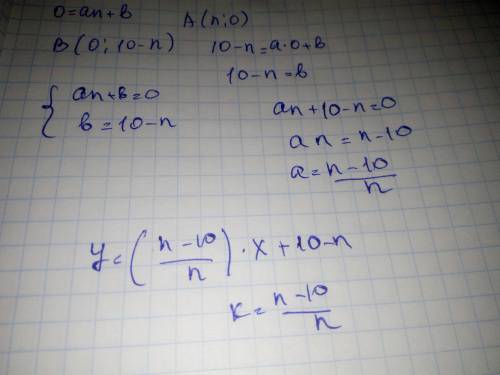 0=an+b
A(n;0)
B(0; 10-n)
10-n=a·0+b
10-n=b
{ an+b=0
b=10-n
an+10-n=0
an=n-10
a=\frac{n-10}{n}
y=(\frac{n-10}{n})·x+10-n
k=\frac{n-10}{n}